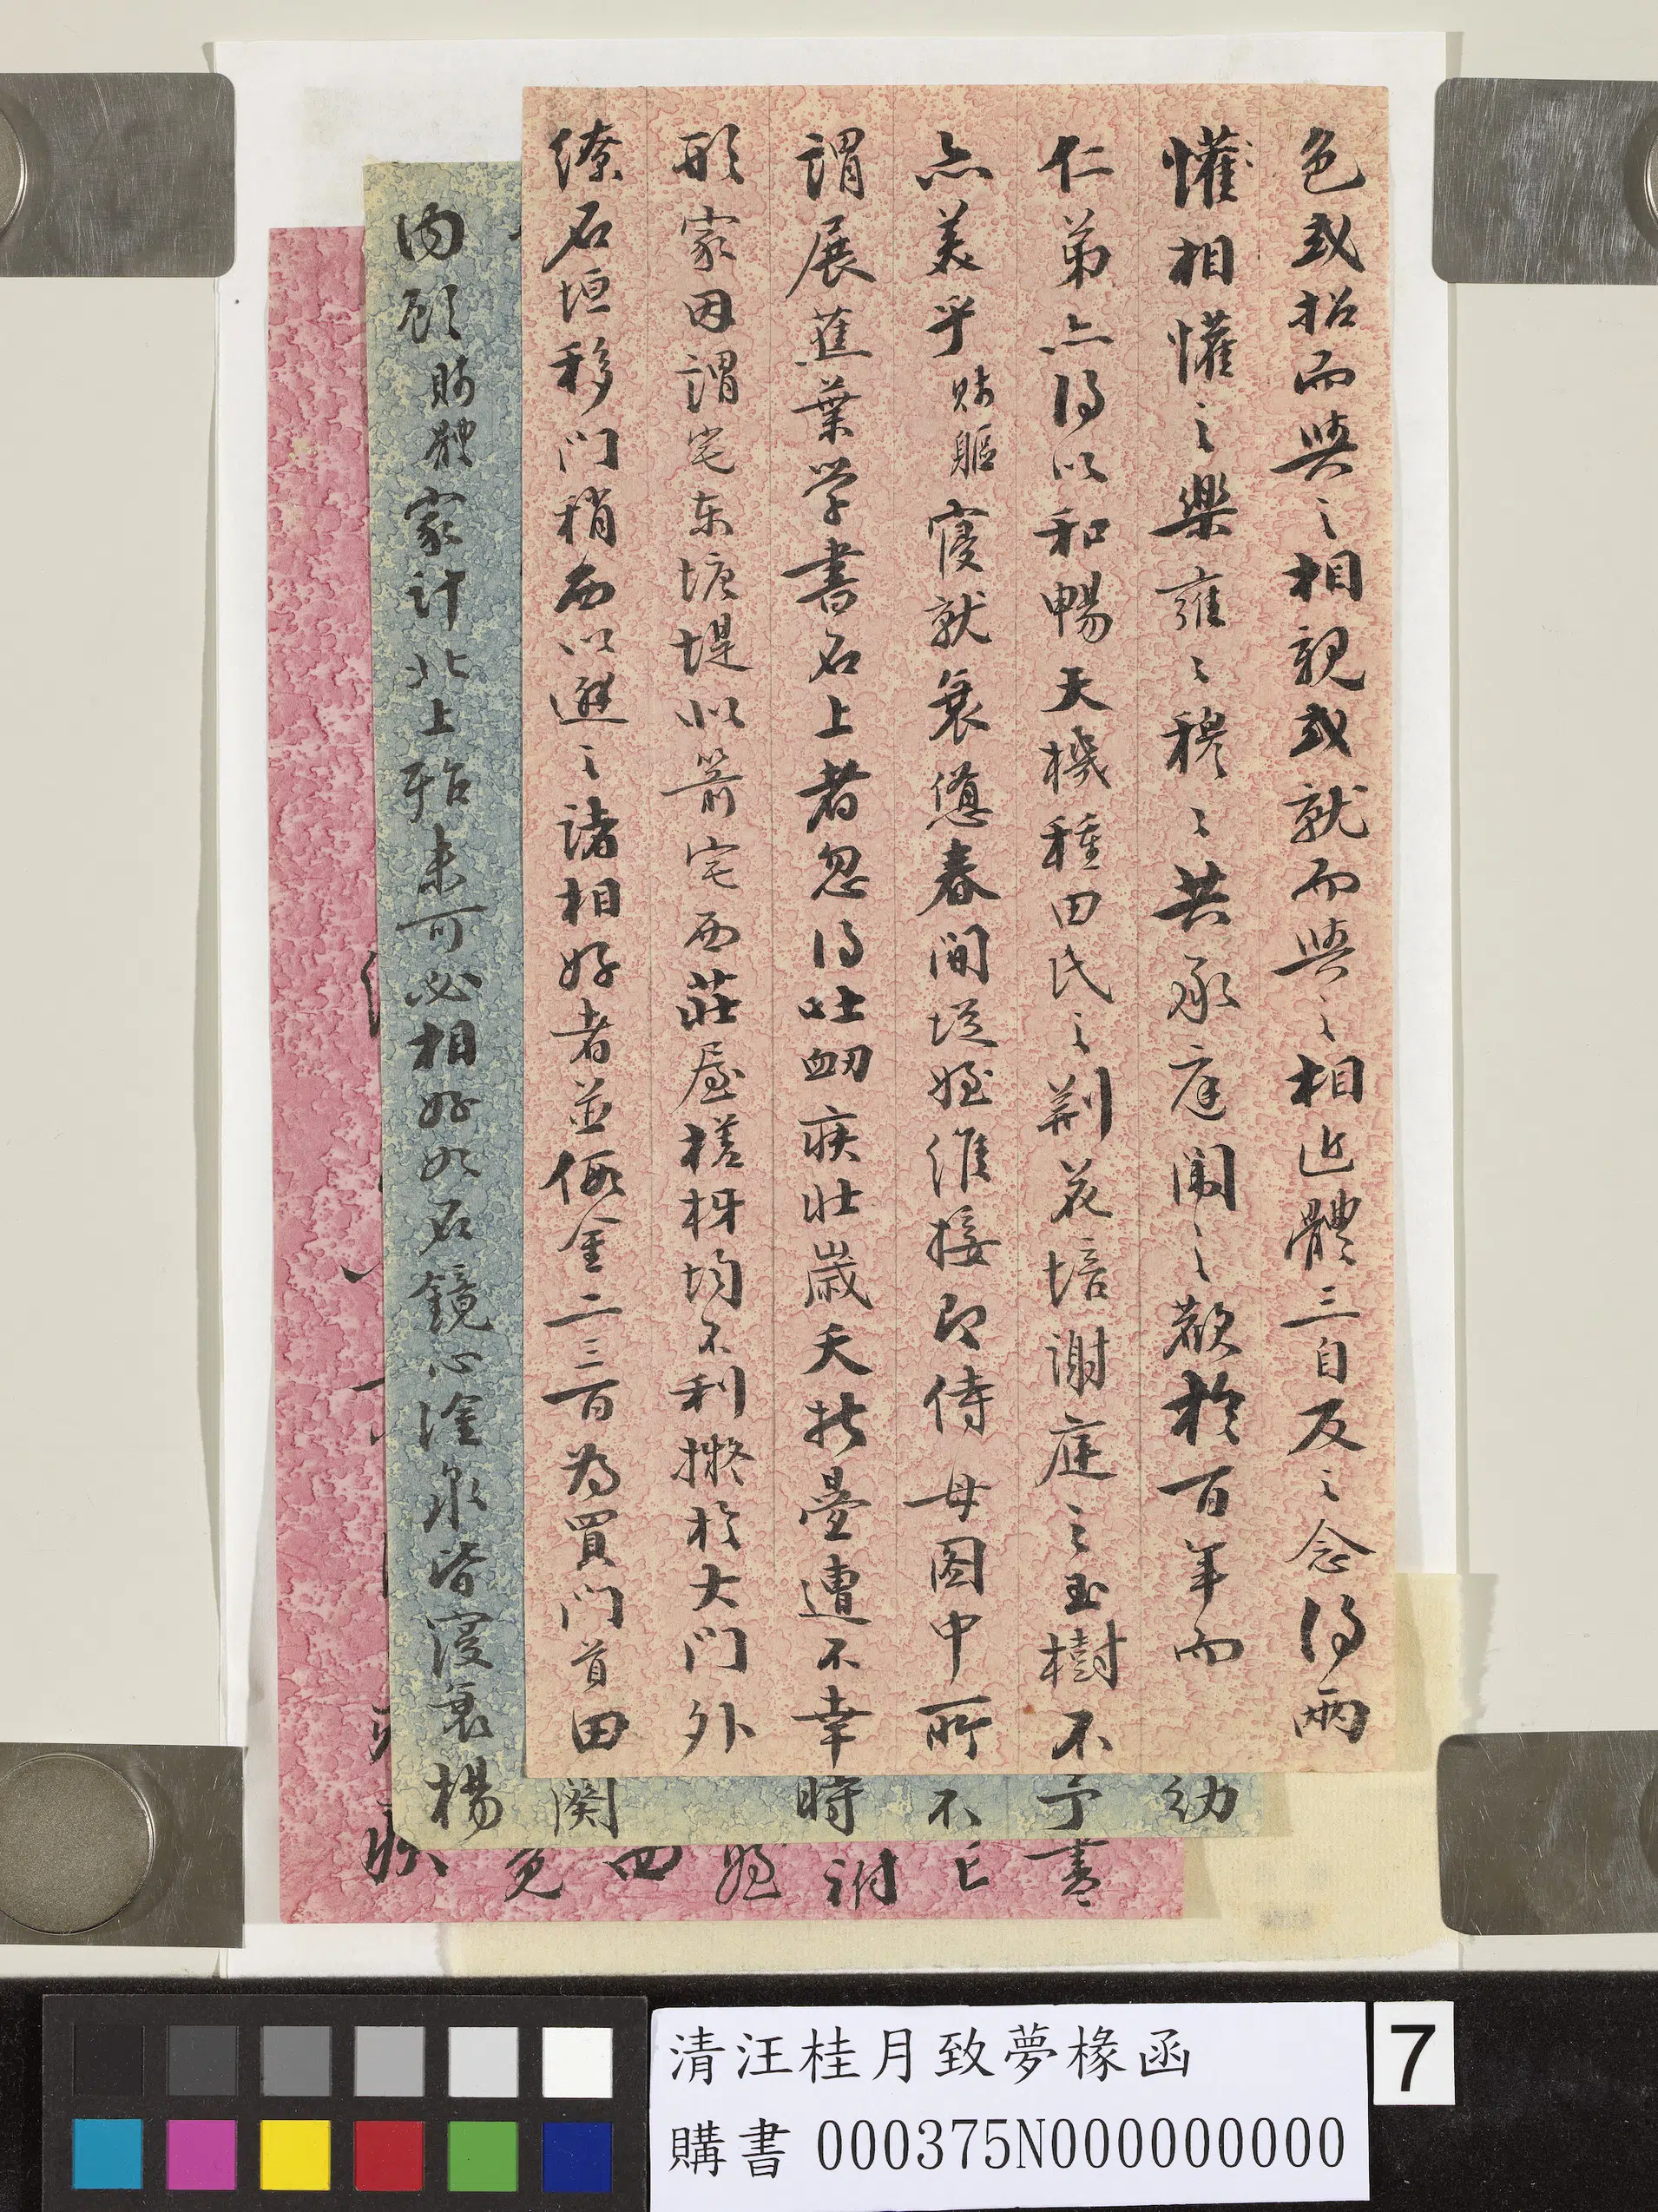 色或招而與之相親或就而與之相近體三自反之念得兩
懽相懽之樂雍々穆々共承庭闈之歡於百年而
仁弟亦得以和暢天機種田氏之荊花培謝庭之玉樹不
亦美乎賤軀寖就衰憊春間從姪維接即侍 母困中所
謂展蕉葉學書石上者忽得吐衂疾壯歲夭折疊遭不幸
形家因謂宅東塘堤似箭宅西莊屋槎枒均不利擬於大門外
繚石垣移門稍西以避之諸相好者並假金二三百為買門首田
幼
予書
時
不
已
謝
姪
四
関
免
內顧賤體家計北上殆未可必相好如石鏡心淦泉皆寖衰楊
清汪桂月致夢椽函
購書 000375N000000000
7